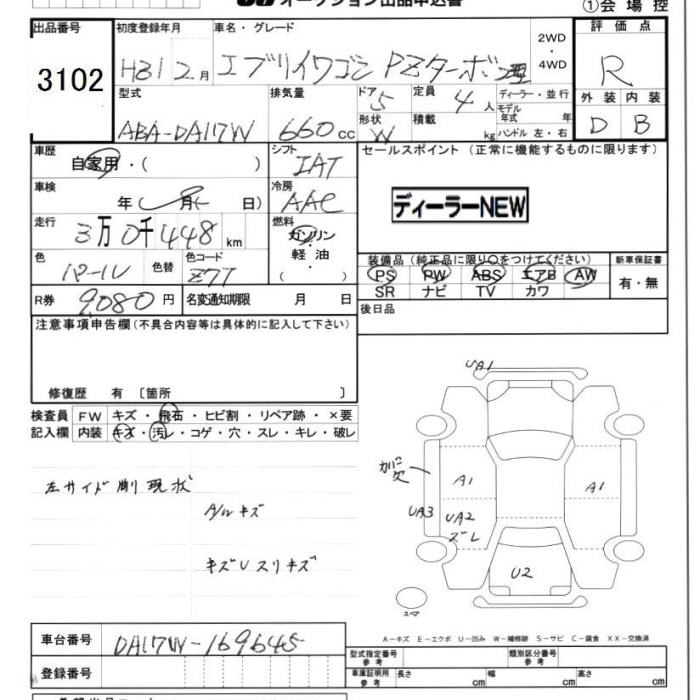 オークション出品申込書
①会場控
出品番号 初度登録年月 車名・グレード 評価点
3102 H31 2月 エブリイワゴン PZターボ 2WD・4WD R
型式 排気量 ドア 5 定員 4人 ディーラー・並行 外装 内装
モデル年式 年
ABA-DA17W 660cc 形状 W 積載 kg ハンドル 左・右 D B
車歴 自家用・( ) シフト IAT セールスポイント (正常に機能するものに限ります)
車検 年 月 日) 冷房 AAC ディーラーNEW
走行 3万0千448km 燃料 ガソリン・軽油・( )
色 パール 色替 色コード Z7T 装備品(純正品に限り○をつけてください) 新車保証書
PS PW ABS エアB AW 有・無
SR ナビ TV カワ
R券 9,080円 名変通知期限 月 日 後日品
注意事項申告欄(不具合内容等は具体的に記入して下さい)
修復歴 有 〔箇所 〕
検査員 FW キズ・飛石・ヒビ割・リペア跡・×要
記入欄 内装 キズ・汚レ・コゲ・穴・スレ・キレ・破レ
UA1
カバー欠
左サイド剛現状
A1 A1
A/Wキズ
UA3 UA2 ズレ
キズUスリキズ
U2
スペア
A-キズ E-エクボ U-凹み W-補修跡 S-サビ C-腐食 XX-交換済
車台番号 DA17W-169645
型式指定番号 参考 類別区分番号 参考
登録番号 車庫証明用 参考 長さ cm 幅 cm 高さ cm